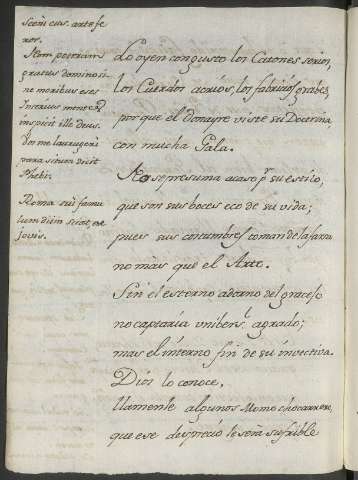 Sceñicus. arte fe
ror.
Nam pectrum
gratus domino si
ne moribus eses
Intravs mente
inspicit ille deus.
Vos me laurigeri
para situm dicit
Phebi.
Roma sui famu
lum dum sciat, ese
jovis.
Lo oyen con gusto los Catones serios,
los Curdos acrios, los fabricios grabes,
por que el donayre viste su Doctrina,
con mucha Gala.
No se presuma acaso pr. su estilo,
que son sus boces eco de su vida;
pues sus costumbres toman de la fama
no mas que el Arte.
Sin el esterno adorno del gracejo
no captaria unibersl. agrado;
mas el interno fin de su invectiva
Dios lo conoce,
llamenle algunos Momo chocarrero,
que ese desprecio le será sufrible